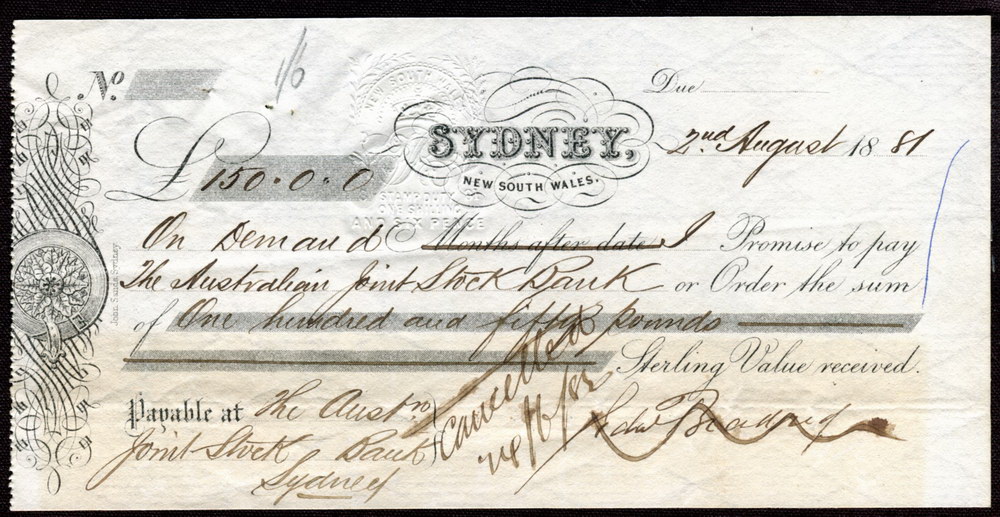 1/6
No.
Due
NEW SOUTH WALES
SYDNEY,
NEW SOUTH WALES.
2nd August 1881
£150.0.0
AND SIX PENCE
On Demand Months after date I Promise to pay
The Australian Joint Stock Bank or Order the sum
of One hundred and fifty pounds
Sterling Value received.
Payable at The Austn
Joint Stock Bank
Sydney
Cancelled